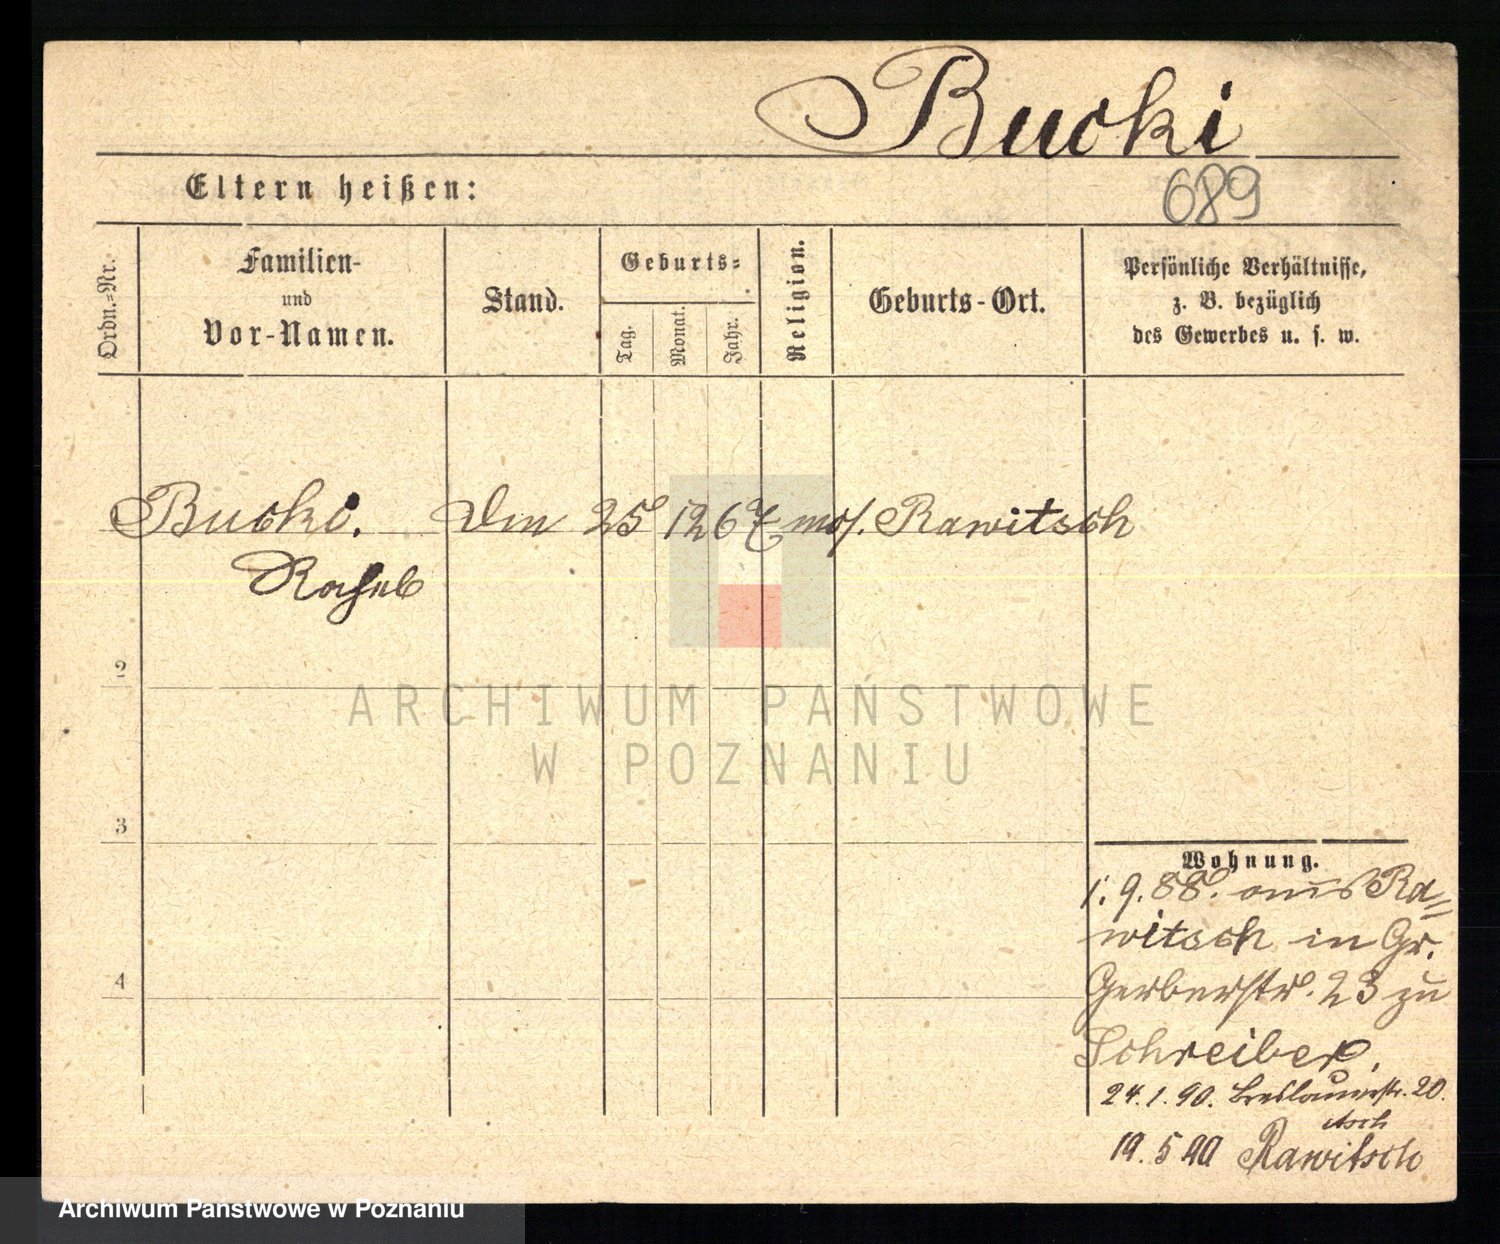 Bucki
Eltern heißen:
689
Ordn.=Nr.
Familien-
und
Vor-Namen.
Stand.
Geburts=
Tag.
Monat.
Jahr.
Religion.
Geburts-Ort.
Persönliche Verhältnisse,
z. B. bezüglich
des Gewerbes u. s. w.
Bucki. 25 12 67 mos. Rawitsch
Rahel
2
3
4
Wohnung.
1. 9. 88. aus Ra=
witsch in Gr.
Gerberstr. 23 zu
Schreiber.
24. 1. 90. Breslauerstr. 20.
19. 5 90 Rawitsch
ARCHIWUM PAŃSTWOWE
W POZNANIU
Archiwum Państwowe w Poznaniu